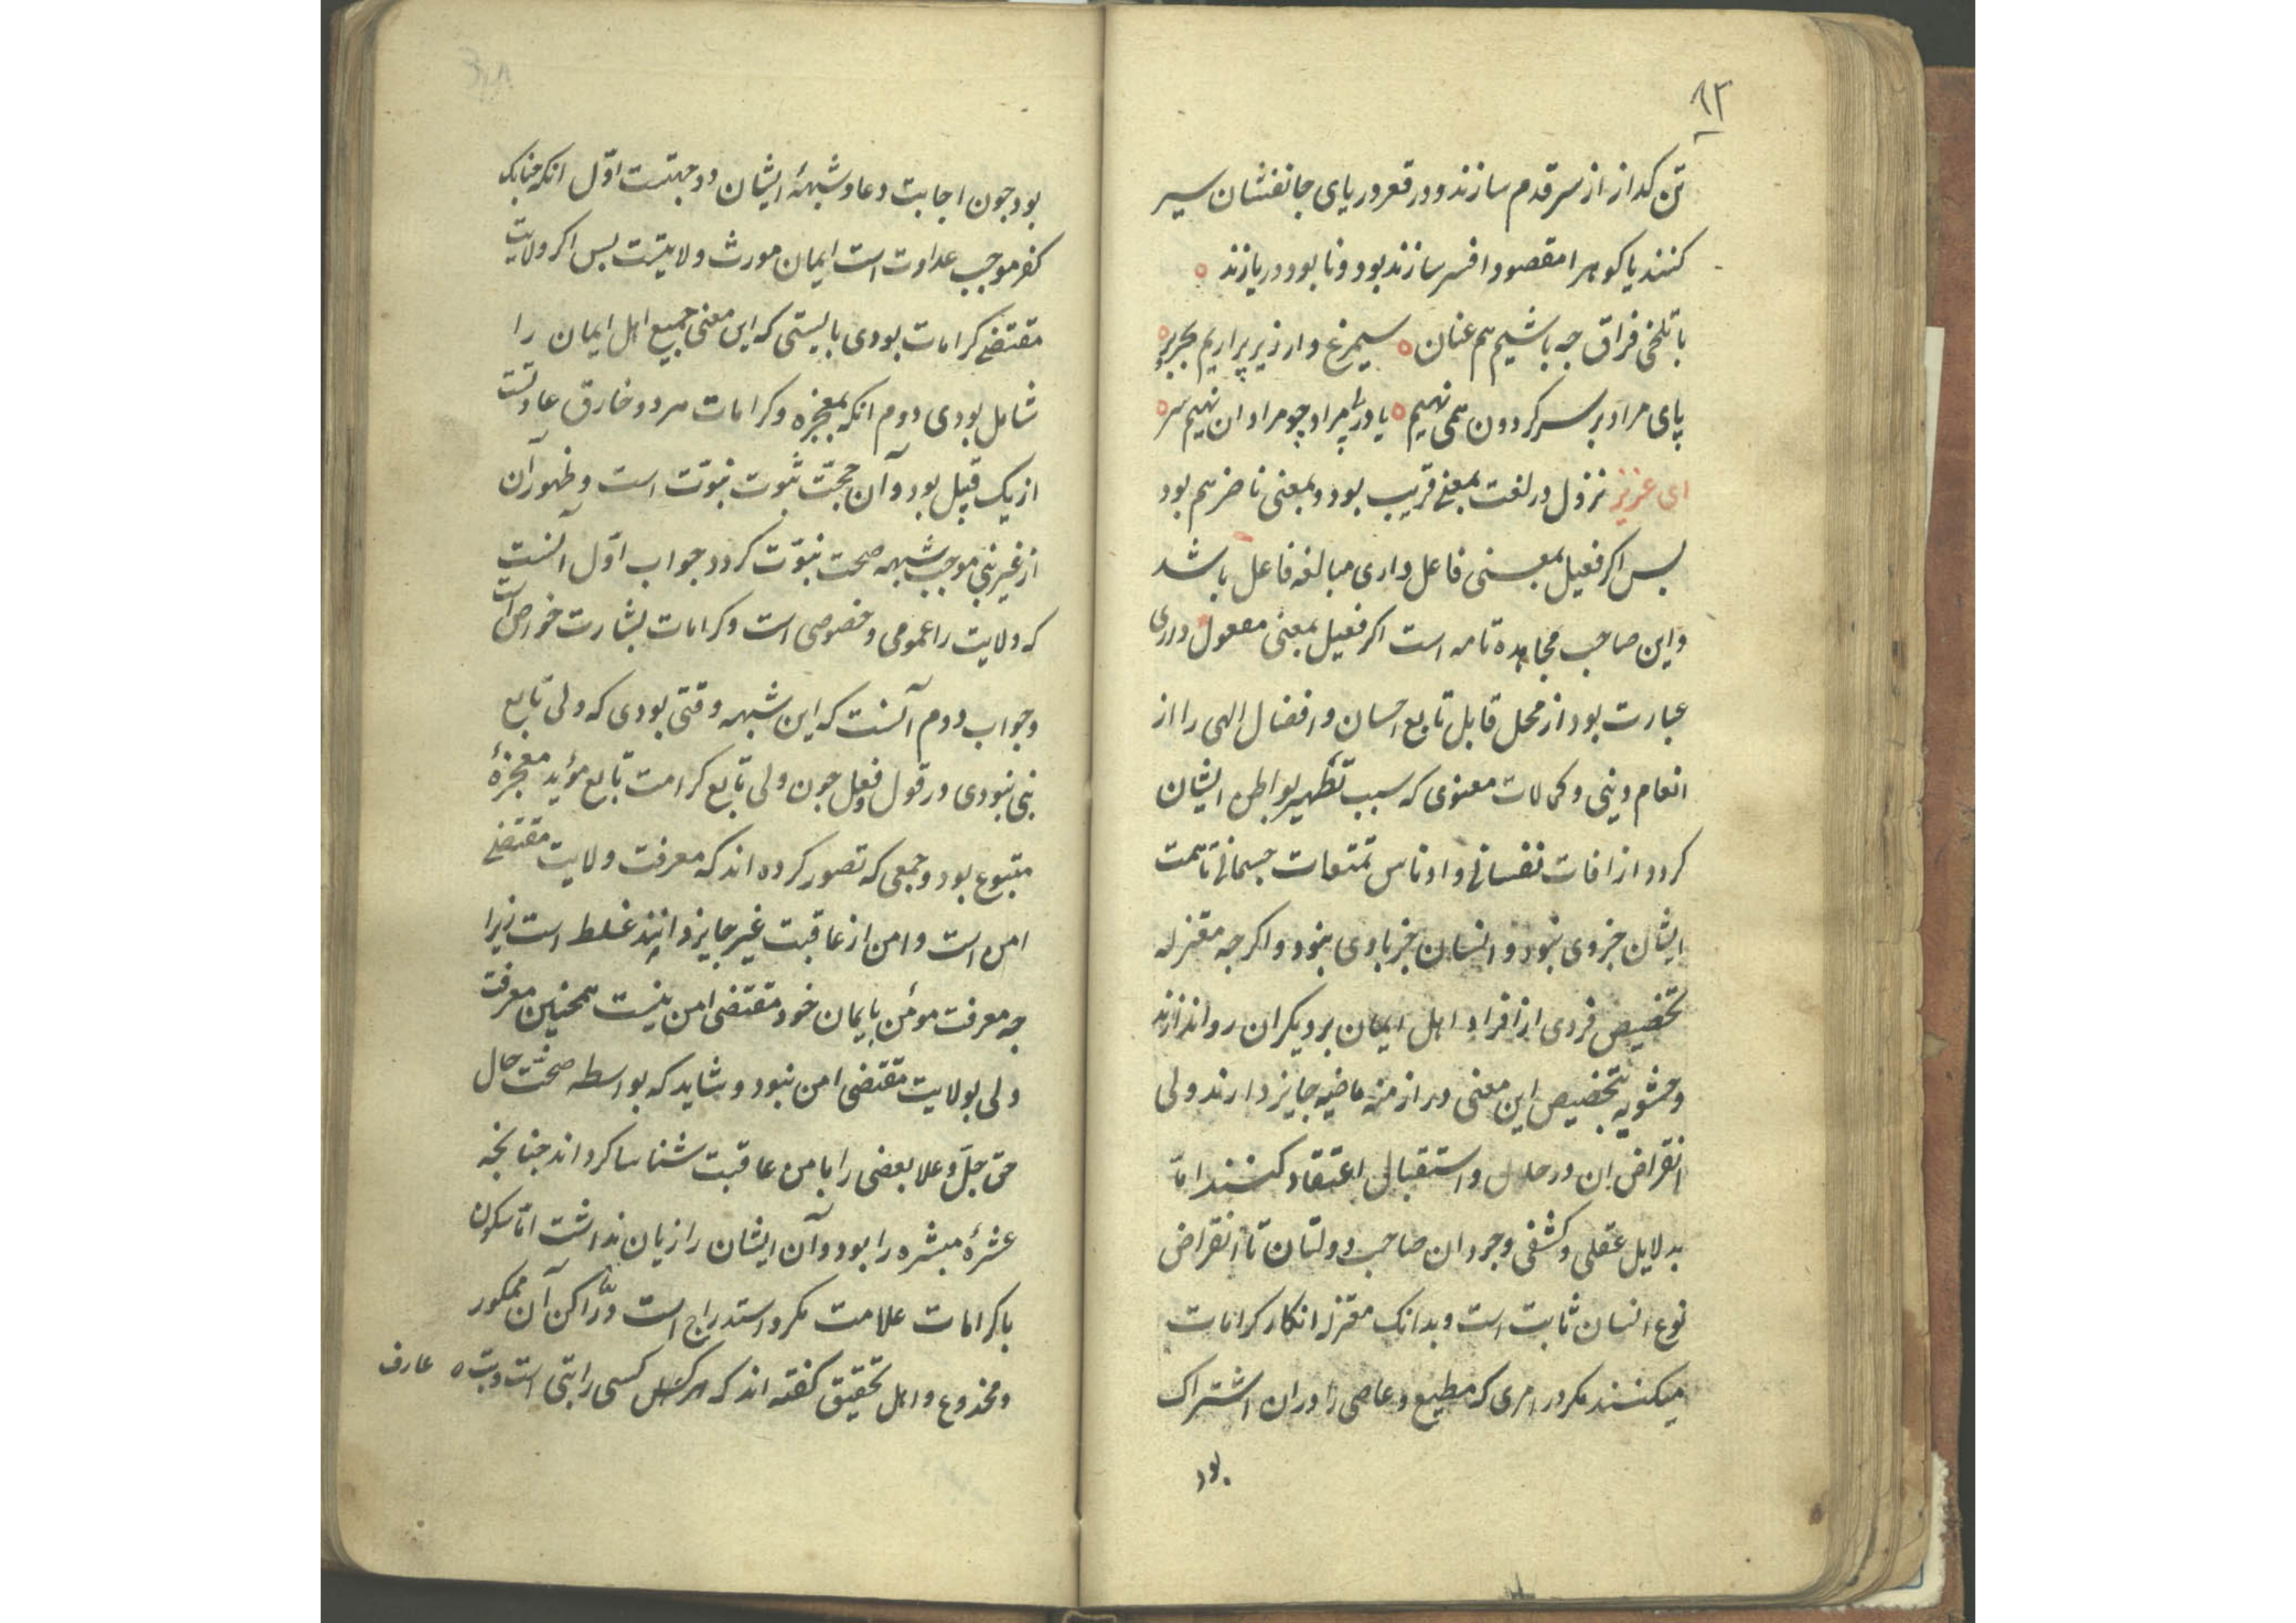 ۹۲
تن کداز از سر قدم سازند و در قعر دریای جانفشان سیر
کنند یا کوهر مقصود افسر سازند بود و نابود دریازند
با تلخی فراق جه باشیم هم عنان سیمرغ وار زیر پر اریم بحر بر
پای مراد بر سر کردون همی نهیم یا در مراد چو مراد ان نهیم سر
ای عزیز نزول در لغت بمعنی قریب بود و بمعنی ناصر هم بود
بس اکر فعیل بمعنی فاعل داری مبالغه فاعل باشد
و این صاحب مجاهده تامه است اکر فعیل بمعنی مفعول داری
عبارت بود از محل قابل تابع احسان و افضال الهی را از
انعام دینی و کمالات معنوی که سبب تطهیر بواطن ایشان
کردد از افات نفسانی و ادناس تمتعات جسمانی تا همت
ایشان جزوی نبود و انسان جز بادی نبود و اکر جه معتزله
تخصیص فردی از افراد اهل ایمان بر دیکران روا ندارند
و حشویه تخصیص این معنی در ازمنه ماضیه جایز دارند ولی
انقراض ان در حال و استقبال اعتقاد کنند اما
بدلایل عقلی و کشفی وجود ان صاحب دولتان تا انقراض
نوع انسان ثابت است و بدانک معتزله انکار کرامات
میکنند مکر در امری که مطیع و عاصی را دران اشتراک
بود
بود جون اجابت دعا و شبههٔ ایشان دو جهتست اوّل انکه جنانک
کفر موجب عداوت است ایمان مورث ولایتست بس اکر ولایت
مقتضی کرامات بودی بایستی که این معنی جمیع اهل ایمان را
شامل بودی دوم انکه معجزه و کرامات هر دو خارق عادتست
از یک قبیل بود و آن حجّت ثبوت نبوّت است و ظهور آن
از غیر نبی موجب شبهه صحت نبوّت کردد جواب اوّل آنست
که ولایت را عمومی و خصوصی است و کرامات بشارت خواص است
و جواب دوم آنست که این شبهه وقتی بودی که ولی تابع
نبی نبودی در قول و فعل جون ولی تابع کرامت تابع مؤید معجزهٔ
متبوع بود و جمعی که تصور کرده اند که معرفت ولایت مقتضی
امن است و امن از عاقبت غیر جایز دانند غلط است زیرا
جه معرفت مؤمن بایمان خود مقتضی امن نیست همجنین معرفت
ولی بولایت مقتضی امن نبود و شاید که بواسطه صحّت حال
حق جلّ و علا بعضی را بامن عاقبت شناسا کرداند جنانجه
عشرهٔ مبشره را بود و آن ایشان را زیان نداشت امّا سکون
با کرامات علامت مکر و استدراج است و راکن آن ممکور
و مخدوع و اهل تحقیق کفته اند که هر کسی را بتی است و بت عارف